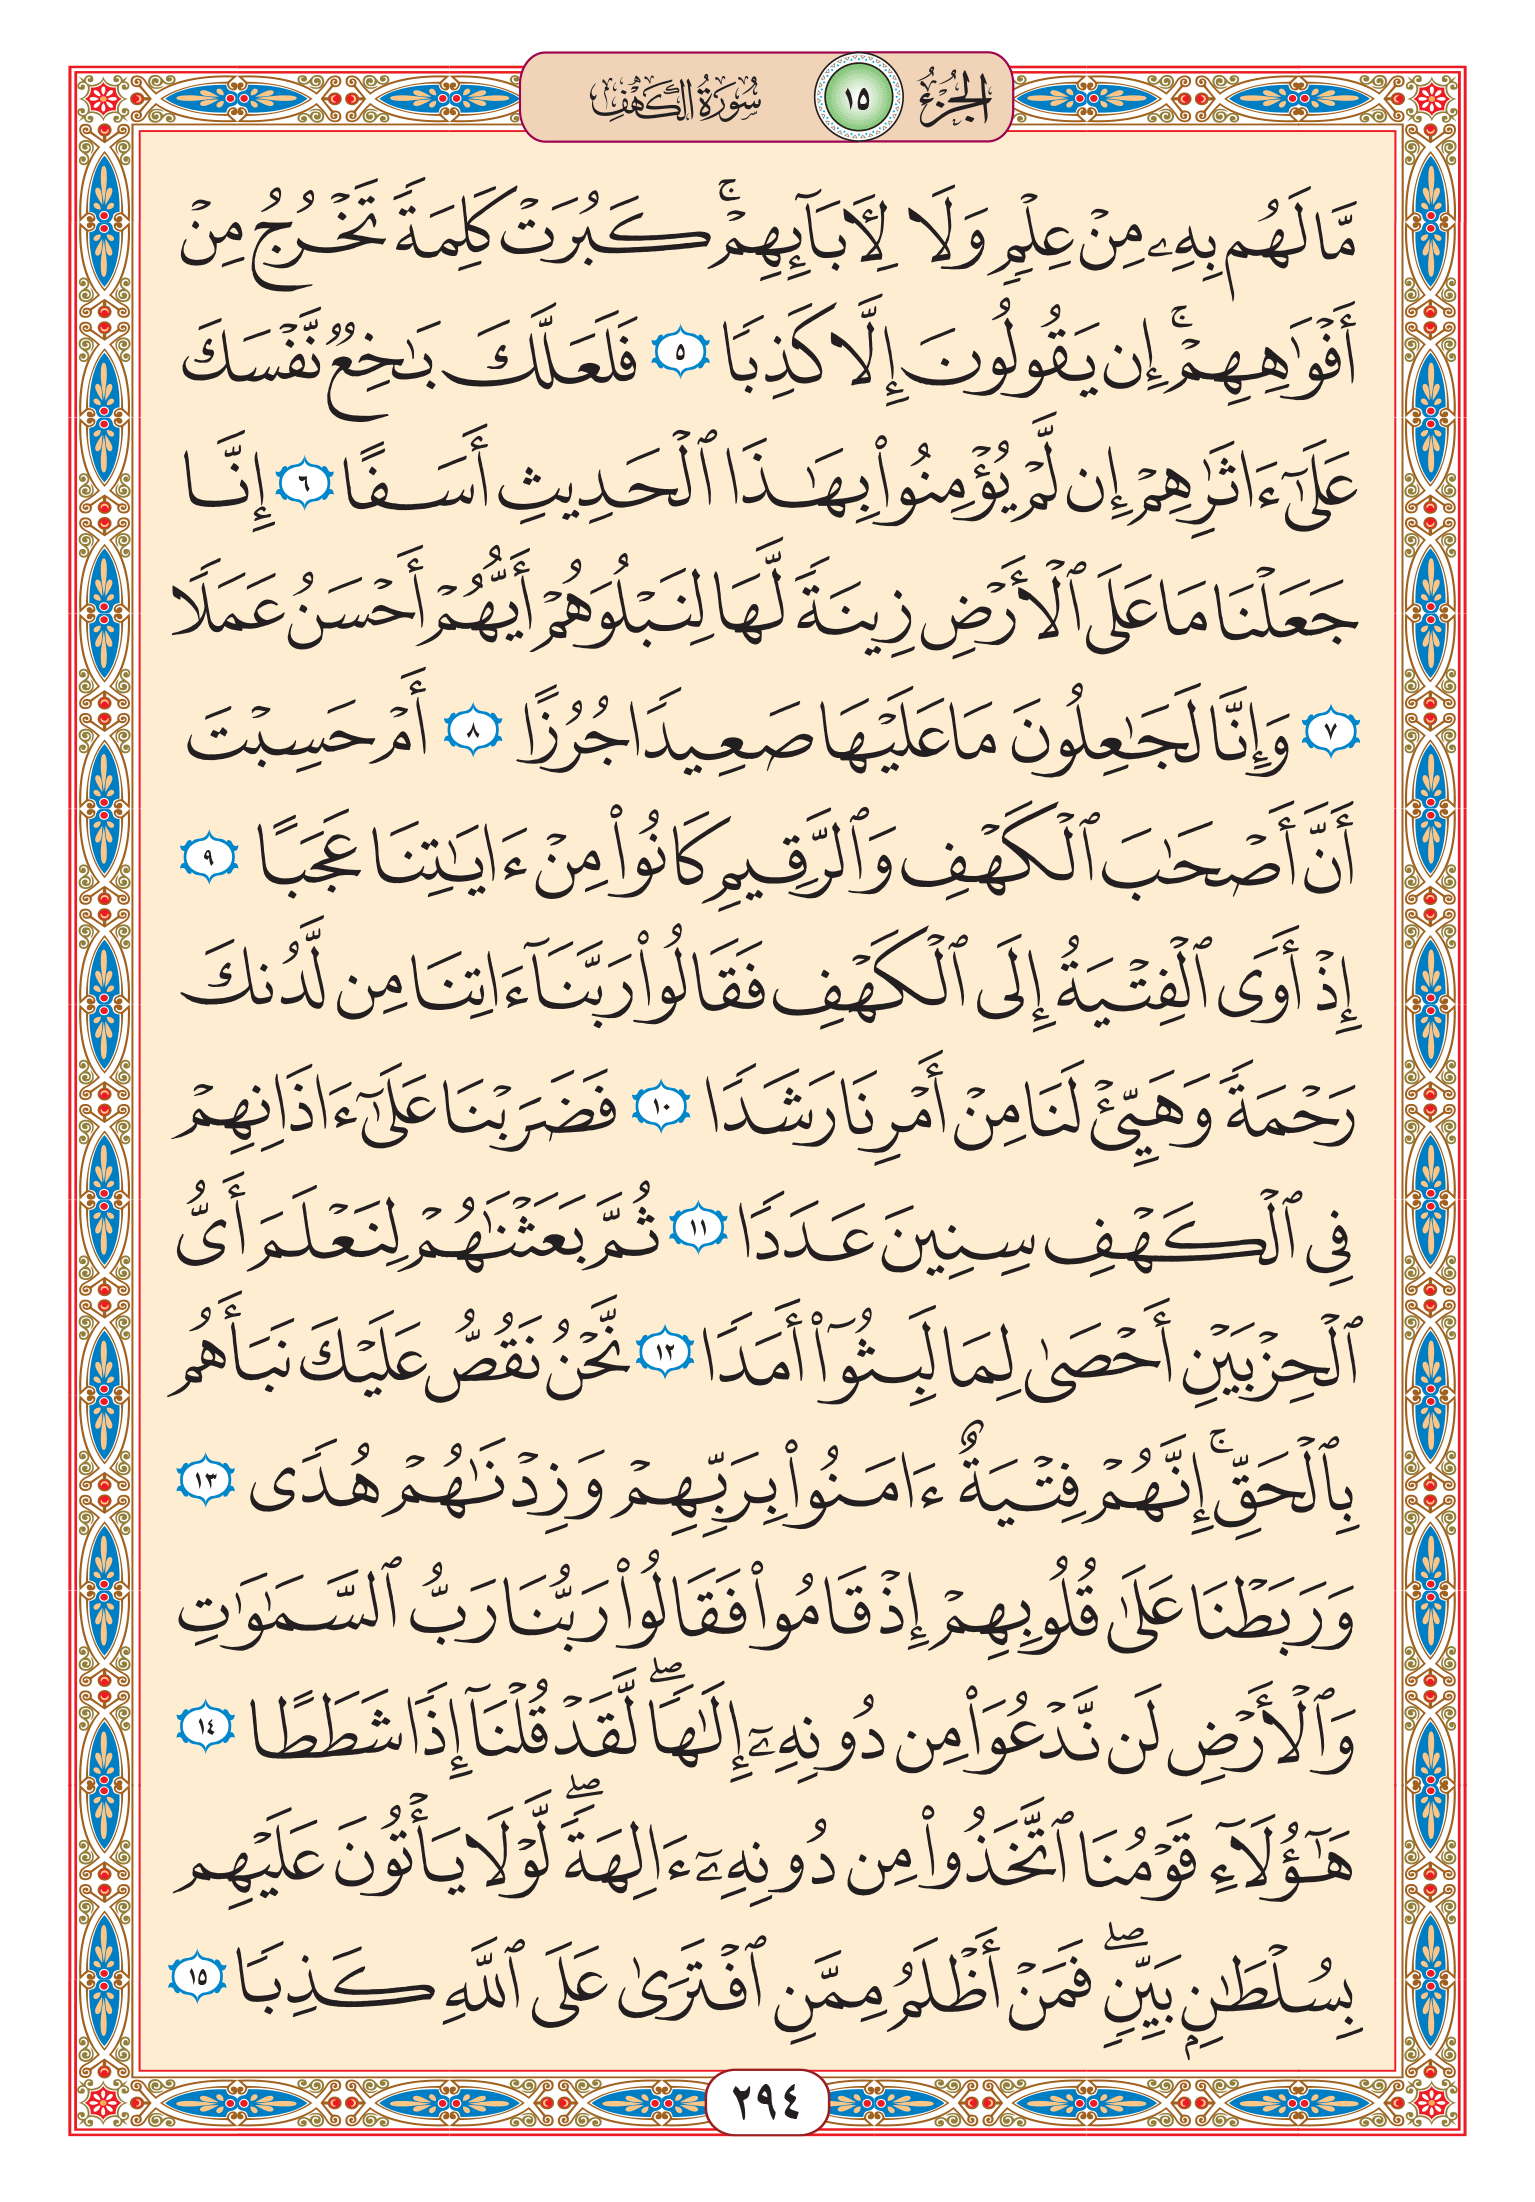 الجزء ١٥ سورة الكهف
مَّا لَهُم بِهِۦ مِنْ عِلْمٍ وَلَا لِءَابَآئِهِمْ ۚ كَبُرَتْ كَلِمَةً تَخْرُجُ مِنْ
أَفْوَٰهِهِمْ ۚ إِن يَقُولُونَ إِلَّا كَذِبًا ٥ فَلَعَلَّكَ بَـٰخِعٌ نَّفْسَكَ
عَلَىٰٓ ءَاثَـٰرِهِمْ إِن لَّمْ يُؤْمِنُوا۟ بِهَـٰذَا ٱلْحَدِيثِ أَسَفًا ٦ إِنَّا
جَعَلْنَا مَا عَلَى ٱلْأَرْضِ زِينَةً لَّهَا لِنَبْلُوَهُمْ أَيُّهُمْ أَحْسَنُ عَمَلًا
٧ وَإِنَّا لَجَـٰعِلُونَ مَا عَلَيْهَا صَعِيدًا جُرُزًا ٨ أَمْ حَسِبْتَ
أَنَّ أَصْحَـٰبَ ٱلْكَهْفِ وَٱلرَّقِيمِ كَانُوا۟ مِنْ ءَايَـٰتِنَا عَجَبًا ٩
إِذْ أَوَى ٱلْفِتْيَةُ إِلَى ٱلْكَهْفِ فَقَالُوا۟ رَبَّنَآ ءَاتِنَا مِن لَّدُنكَ
رَحْمَةً وَهَيِّئْ لَنَا مِنْ أَمْرِنَا رَشَدًا ١٠ فَضَرَبْنَا عَلَىٰٓ ءَاذَانِهِمْ
فِى ٱلْكَهْفِ سِنِينَ عَدَدًا ١١ ثُمَّ بَعَثْنَـٰهُمْ لِنَعْلَمَ أَىُّ
ٱلْحِزْبَيْنِ أَحْصَىٰ لِمَا لَبِثُوٓا۟ أَمَدًا ١٢ نَّحْنُ نَقُصُّ عَلَيْكَ نَبَأَهُم
بِٱلْحَقِّ ۚ إِنَّهُمْ فِتْيَةٌ ءَامَنُوا۟ بِرَبِّهِمْ وَزِدْنَـٰهُمْ هُدًى ١٣
وَرَبَطْنَا عَلَىٰ قُلُوبِهِمْ إِذْ قَامُوا۟ فَقَالُوا۟ رَبُّنَا رَبُّ ٱلسَّمَـٰوَٰتِ
وَٱلْأَرْضِ لَن نَّدْعُوَا۟ مِن دُونِهِۦٓ إِلَـٰهًا ۖ لَّقَدْ قُلْنَآ إِذًا شَطَطًا ١٤
هَـٰٓؤُلَآءِ قَوْمُنَا ٱتَّخَذُوا۟ مِن دُونِهِۦٓ ءَالِهَةً ۖ لَّوْلَا يَأْتُونَ عَلَيْهِم
بِسُلْطَـٰنٍۭ بَيِّنٍ ۖ فَمَنْ أَظْلَمُ مِمَّنِ ٱفْتَرَىٰ عَلَى ٱللَّهِ كَذِبًا ١٥
٢٩٤